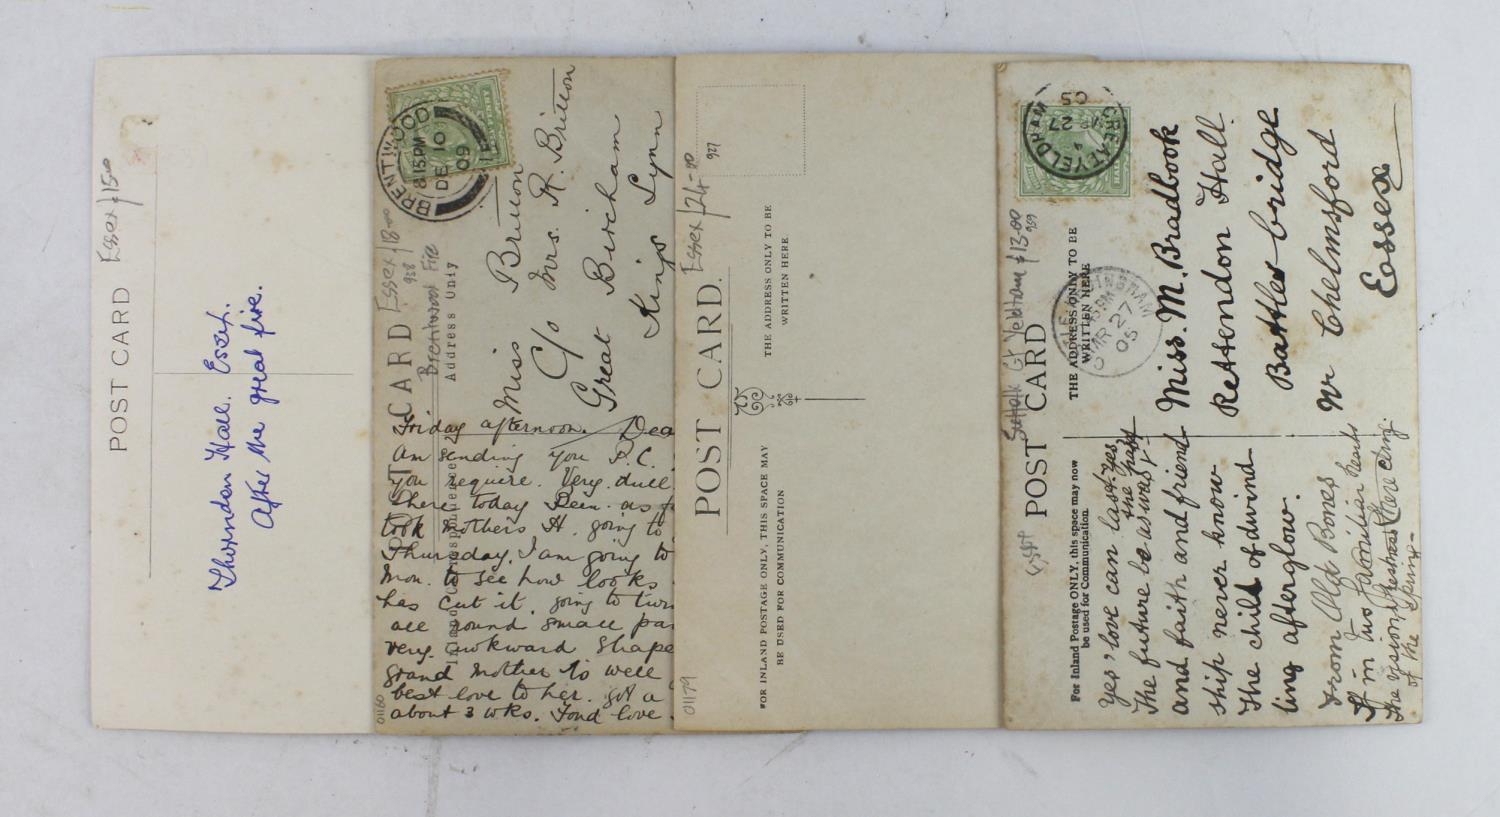 POST CARD
Essex £15-00
Thorndon Hall. Essex.
After the great fire.
POST CARD
Essex £18-00
928
Brentwood Fire
Address Only
Inland Correspondence
BRENTWOOD
8.15 PM
DE 10
09
Miss Britton
C/o Mrs. R. Britton
Great Bircham
Kings Lynn
Friday afternoon. Dea
Am sending you P.C.
you require. Very dull
there today
took Mothers H. going to
Thursday. I am going to
Mon. to see how looks
has cut it, going to
all round small
very awkward shape
grand Mother is well
best love to her. got a
about 3 wks. Fond love
01160
POST CARD.
Essex £24-00
927
THE ADDRESS ONLY TO BE
WRITTEN HERE
FOR INLAND POSTAGE ONLY, THIS SPACE MAY
BE USED FOR COMMUNICATION
01179
POST CARD
Suffolk Gt Yeldham £13-00
959
THE ADDRESS ONLY TO BE
WRITTEN HERE
For Inland Postage ONLY, this space may now
be used for Communication.
GREAT YELDHAM
27
05
MR 27
05
Miss. M. Bradbook
Rettendon Hall.
Battles-bridge
Nr Chelmsford
Essex
Yes, love can last yes
The future be as was the past
And faith and friend
ship never know
The child of dwind
ling afterglow.
From Old Bones
If in two familiar hearts
The vision
of the spring